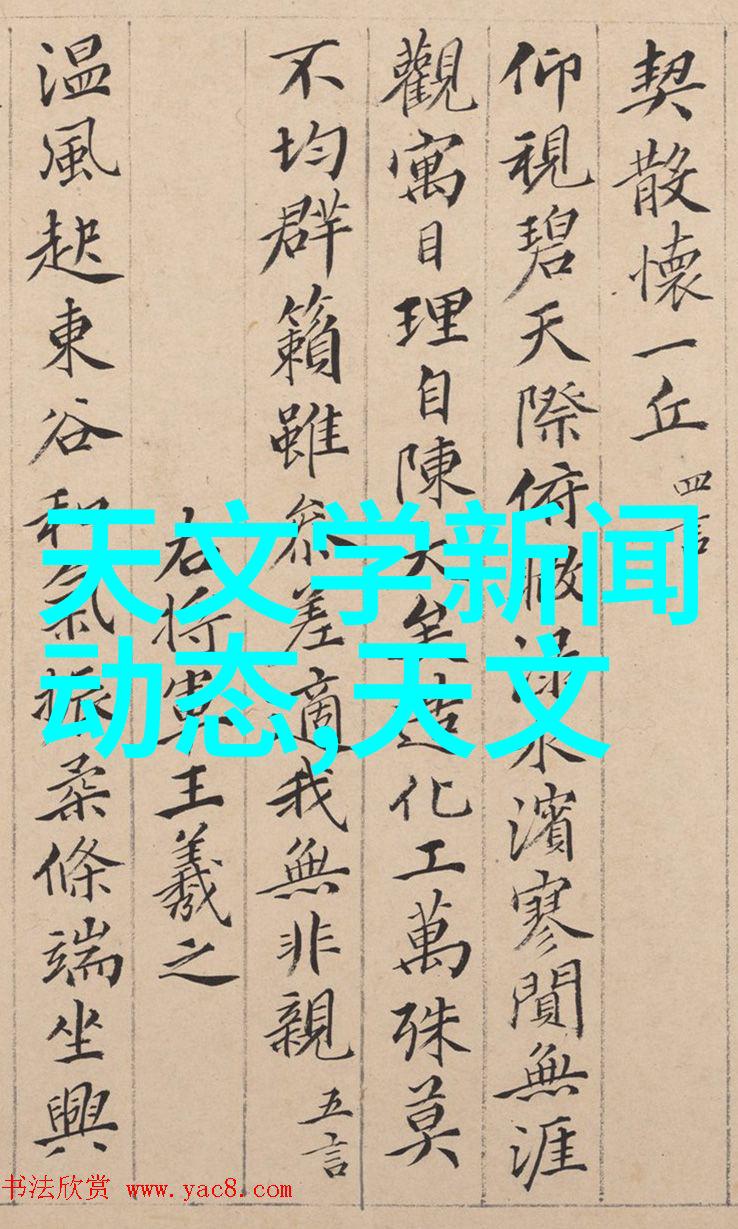 契散懷一丘 四言
仰視碧天際俯瞰淥水濱寥閴無涯
觀寓目理自陳大矣造化工萬殊莫
不均群籟雖參差適我無非親 五言
右將軍王羲之
温風起東谷和氣振柔條端坐興
天文学新闻
动态,天文
书法欣赏 www.yac8.com